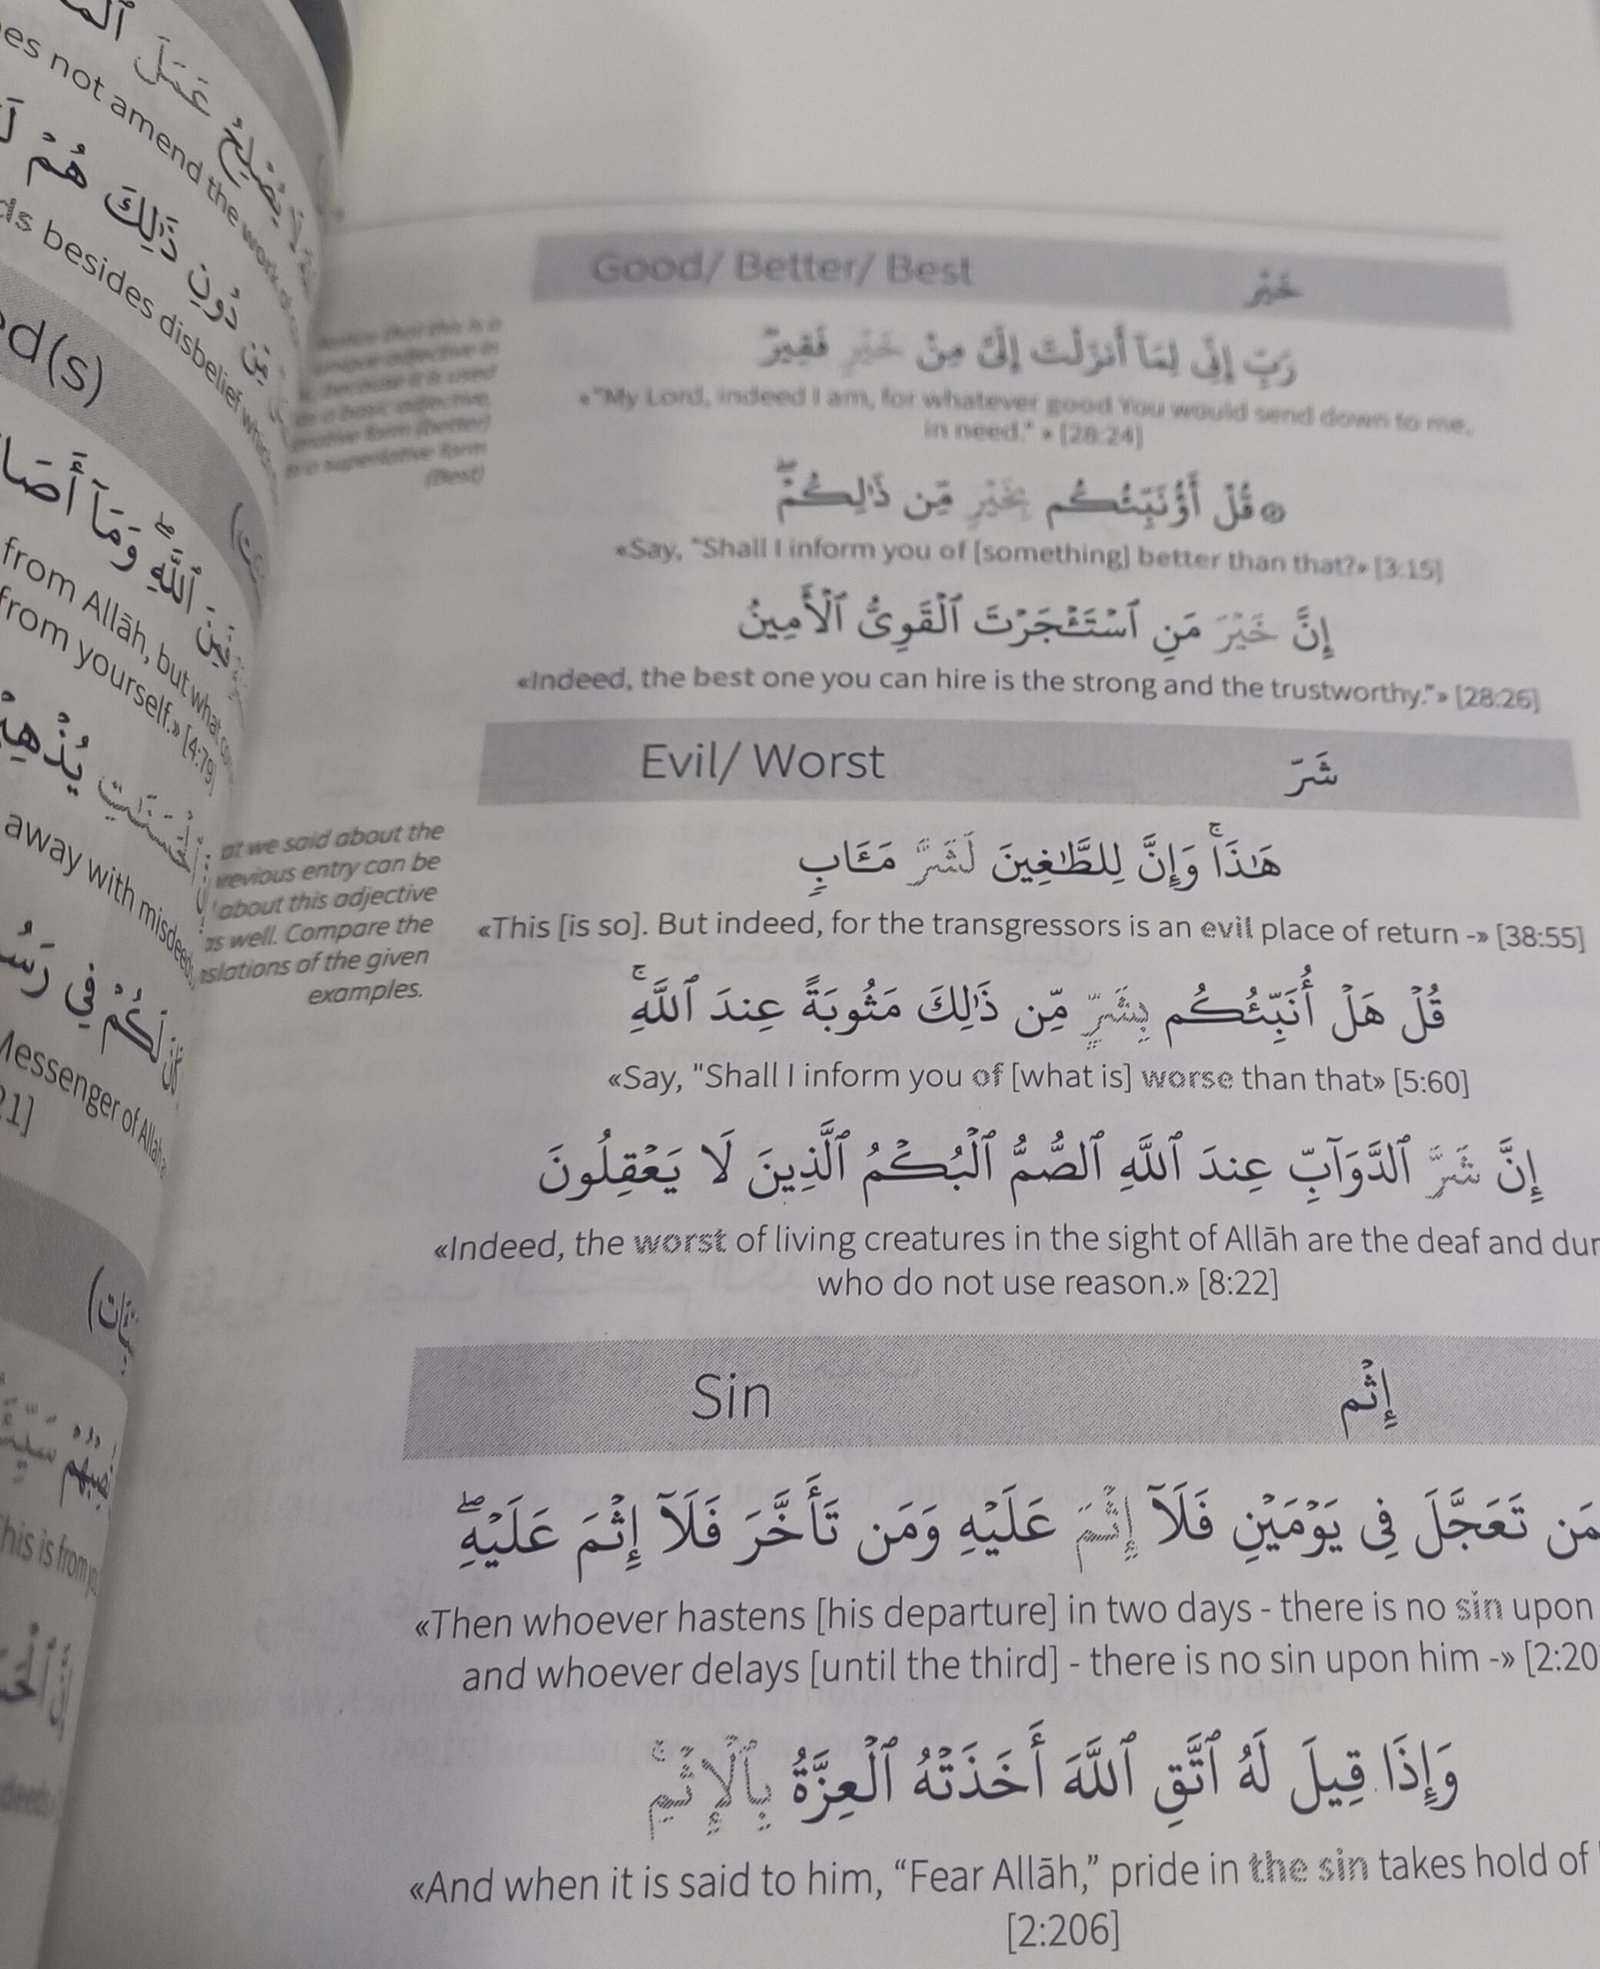 لَا يُصْلِحُ عَمَلَ
not amend the work
دُونِ ذَٰلِكَ هُمْ
besides disbelief which
ٱللَّهِ ۖ وَمَآ
from Allāh, but what
from yourself.» [4:79]
ٱلْحَسَنَـٰتِ
away with misdeeds
لَكُمْ فِي
Messenger of Allah
This is from
Good/ Better/ Best خَيْر
رَبِّ إِنِّى لِمَآ أَنزَلْتَ إِلَىَّ مِنْ خَيْرٍ فَقِيرٌ
«"My Lord, indeed I am, for whatever good You would send down to me,
in need." » [28:24]
this is a
unique adjective in
because it is used
as a basic adjective,
form (better)
a superlative form
(Best)
۞ قُلْ أَؤُنَبِّئُكُم بِخَيْرٍ مِّن ذَٰلِكُمْ ۖ
«Say, "Shall I inform you of [something] better than that?» [3:15]
إِنَّ خَيْرَ مَنِ ٱسْتَـْٔجَرْتَ ٱلْقَوِىُّ ٱلْأَمِينُ
«Indeed, the best one you can hire is the strong and the trustworthy."» [28:26]
Evil/ Worst شَرّ
هَـٰذَا ۚ وَإِنَّ لِلطَّـٰغِينَ لَشَرَّ مَـَٔابٍ
«This [is so]. But indeed, for the transgressors is an evil place of return -» [38:55]
we said about the
entry can be
about this adjective
as well. Compare the
of the given
examples.
قُلْ هَلْ أُنَبِّئُكُم بِشَرٍّ مِّن ذَٰلِكَ مَثُوبَةً عِندَ ٱللَّهِ ۚ
«Say, "Shall I inform you of [what is] worse than that» [5:60]
إِنَّ شَرَّ ٱلدَّوَآبِّ عِندَ ٱللَّهِ ٱلصُّمُّ ٱلْبُكْمُ ٱلَّذِينَ لَا يَعْقِلُونَ
«Indeed, the worst of living creatures in the sight of Allāh are the deaf and
who do not use reason.» [8:22]
Sin إِثْم
مَن تَعَجَّلَ فِى يَوْمَيْنِ فَلَآ إِثْمَ عَلَيْهِ وَمَن تَأَخَّرَ فَلَآ إِثْمَ عَلَيْهِ ۖ
«Then whoever hastens [his departure] in two days - there is no sin upon
and whoever delays [until the third] - there is no sin upon him -» [2:20
وَإِذَا قِيلَ لَهُ ٱتَّقِ ٱللَّهَ أَخَذَتْهُ ٱلْعِزَّةُ بِٱلْإِثْمِ ۚ
«And when it is said to him, “Fear Allāh,” pride in the sin takes hold of
[2:206]